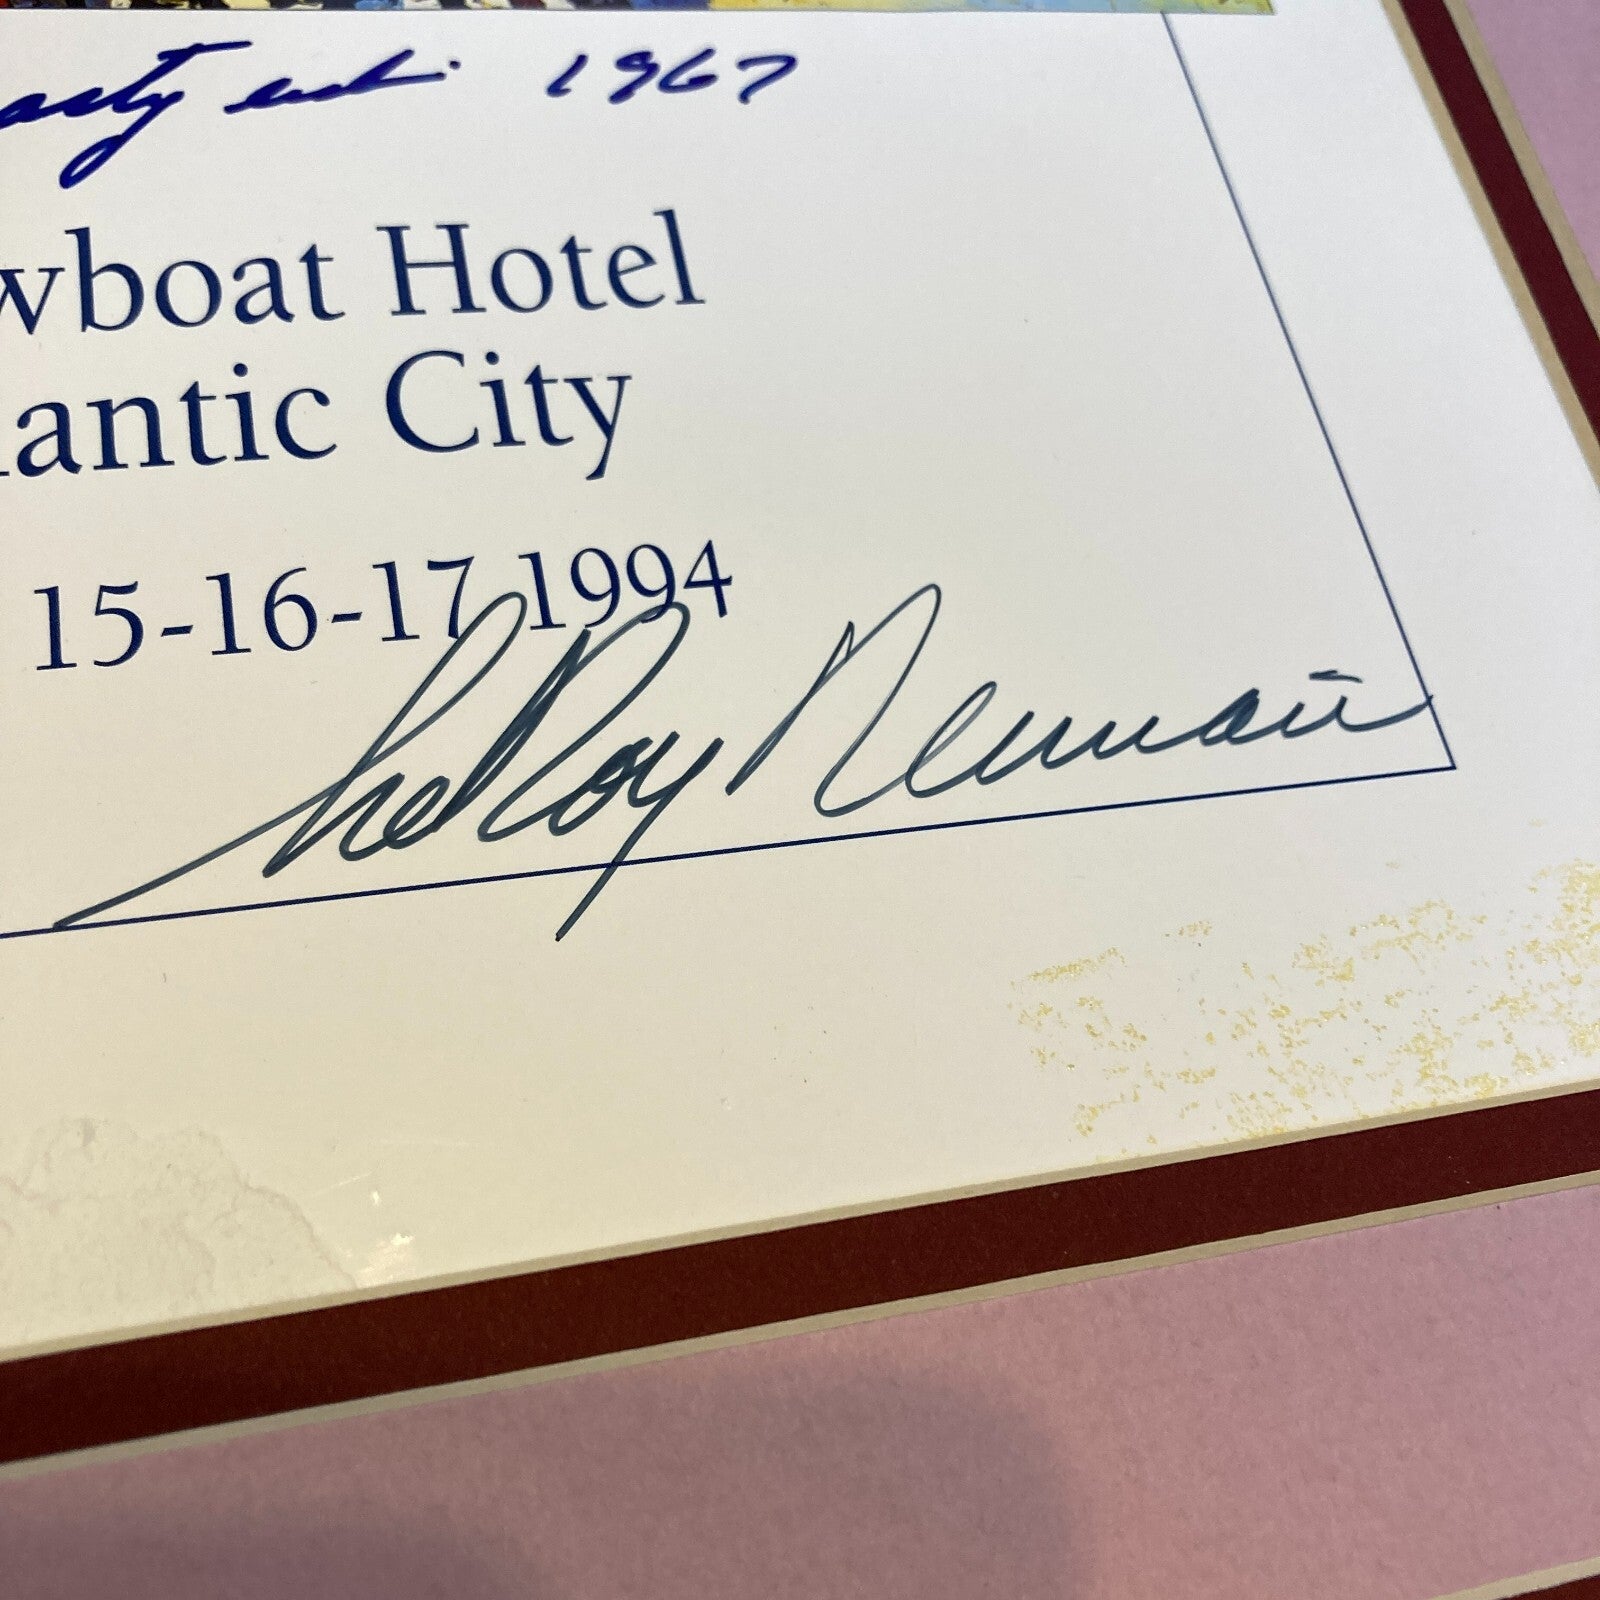 asty 1967
wboat Hotel
lantic City
15-16-17 1994
LeRoy Neiman